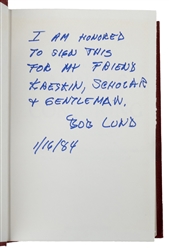 I AM HONORED
TO SIGN THIS
FOR MY FRIEND
KAESKIN, SCHOLAR
& GENTLEMAN.
BOB LUND
1/16/84